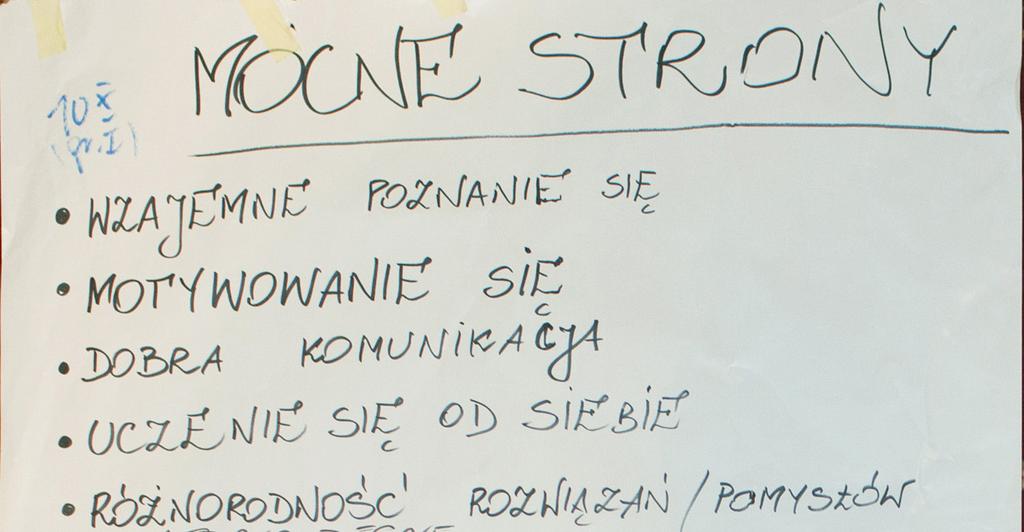 MOCNE STRONY
10 X
(gr. I)
• WZAJEMNE POZNANIE SIĘ
• MOTYWOWANIE SIĘ
• DOBRA KOMUNIKACJA
• UCZENIE SIĘ OD SIEBIE
• RÓŻNORODNOŚĆ ROZWIĄZAŃ / POMYSŁÓW